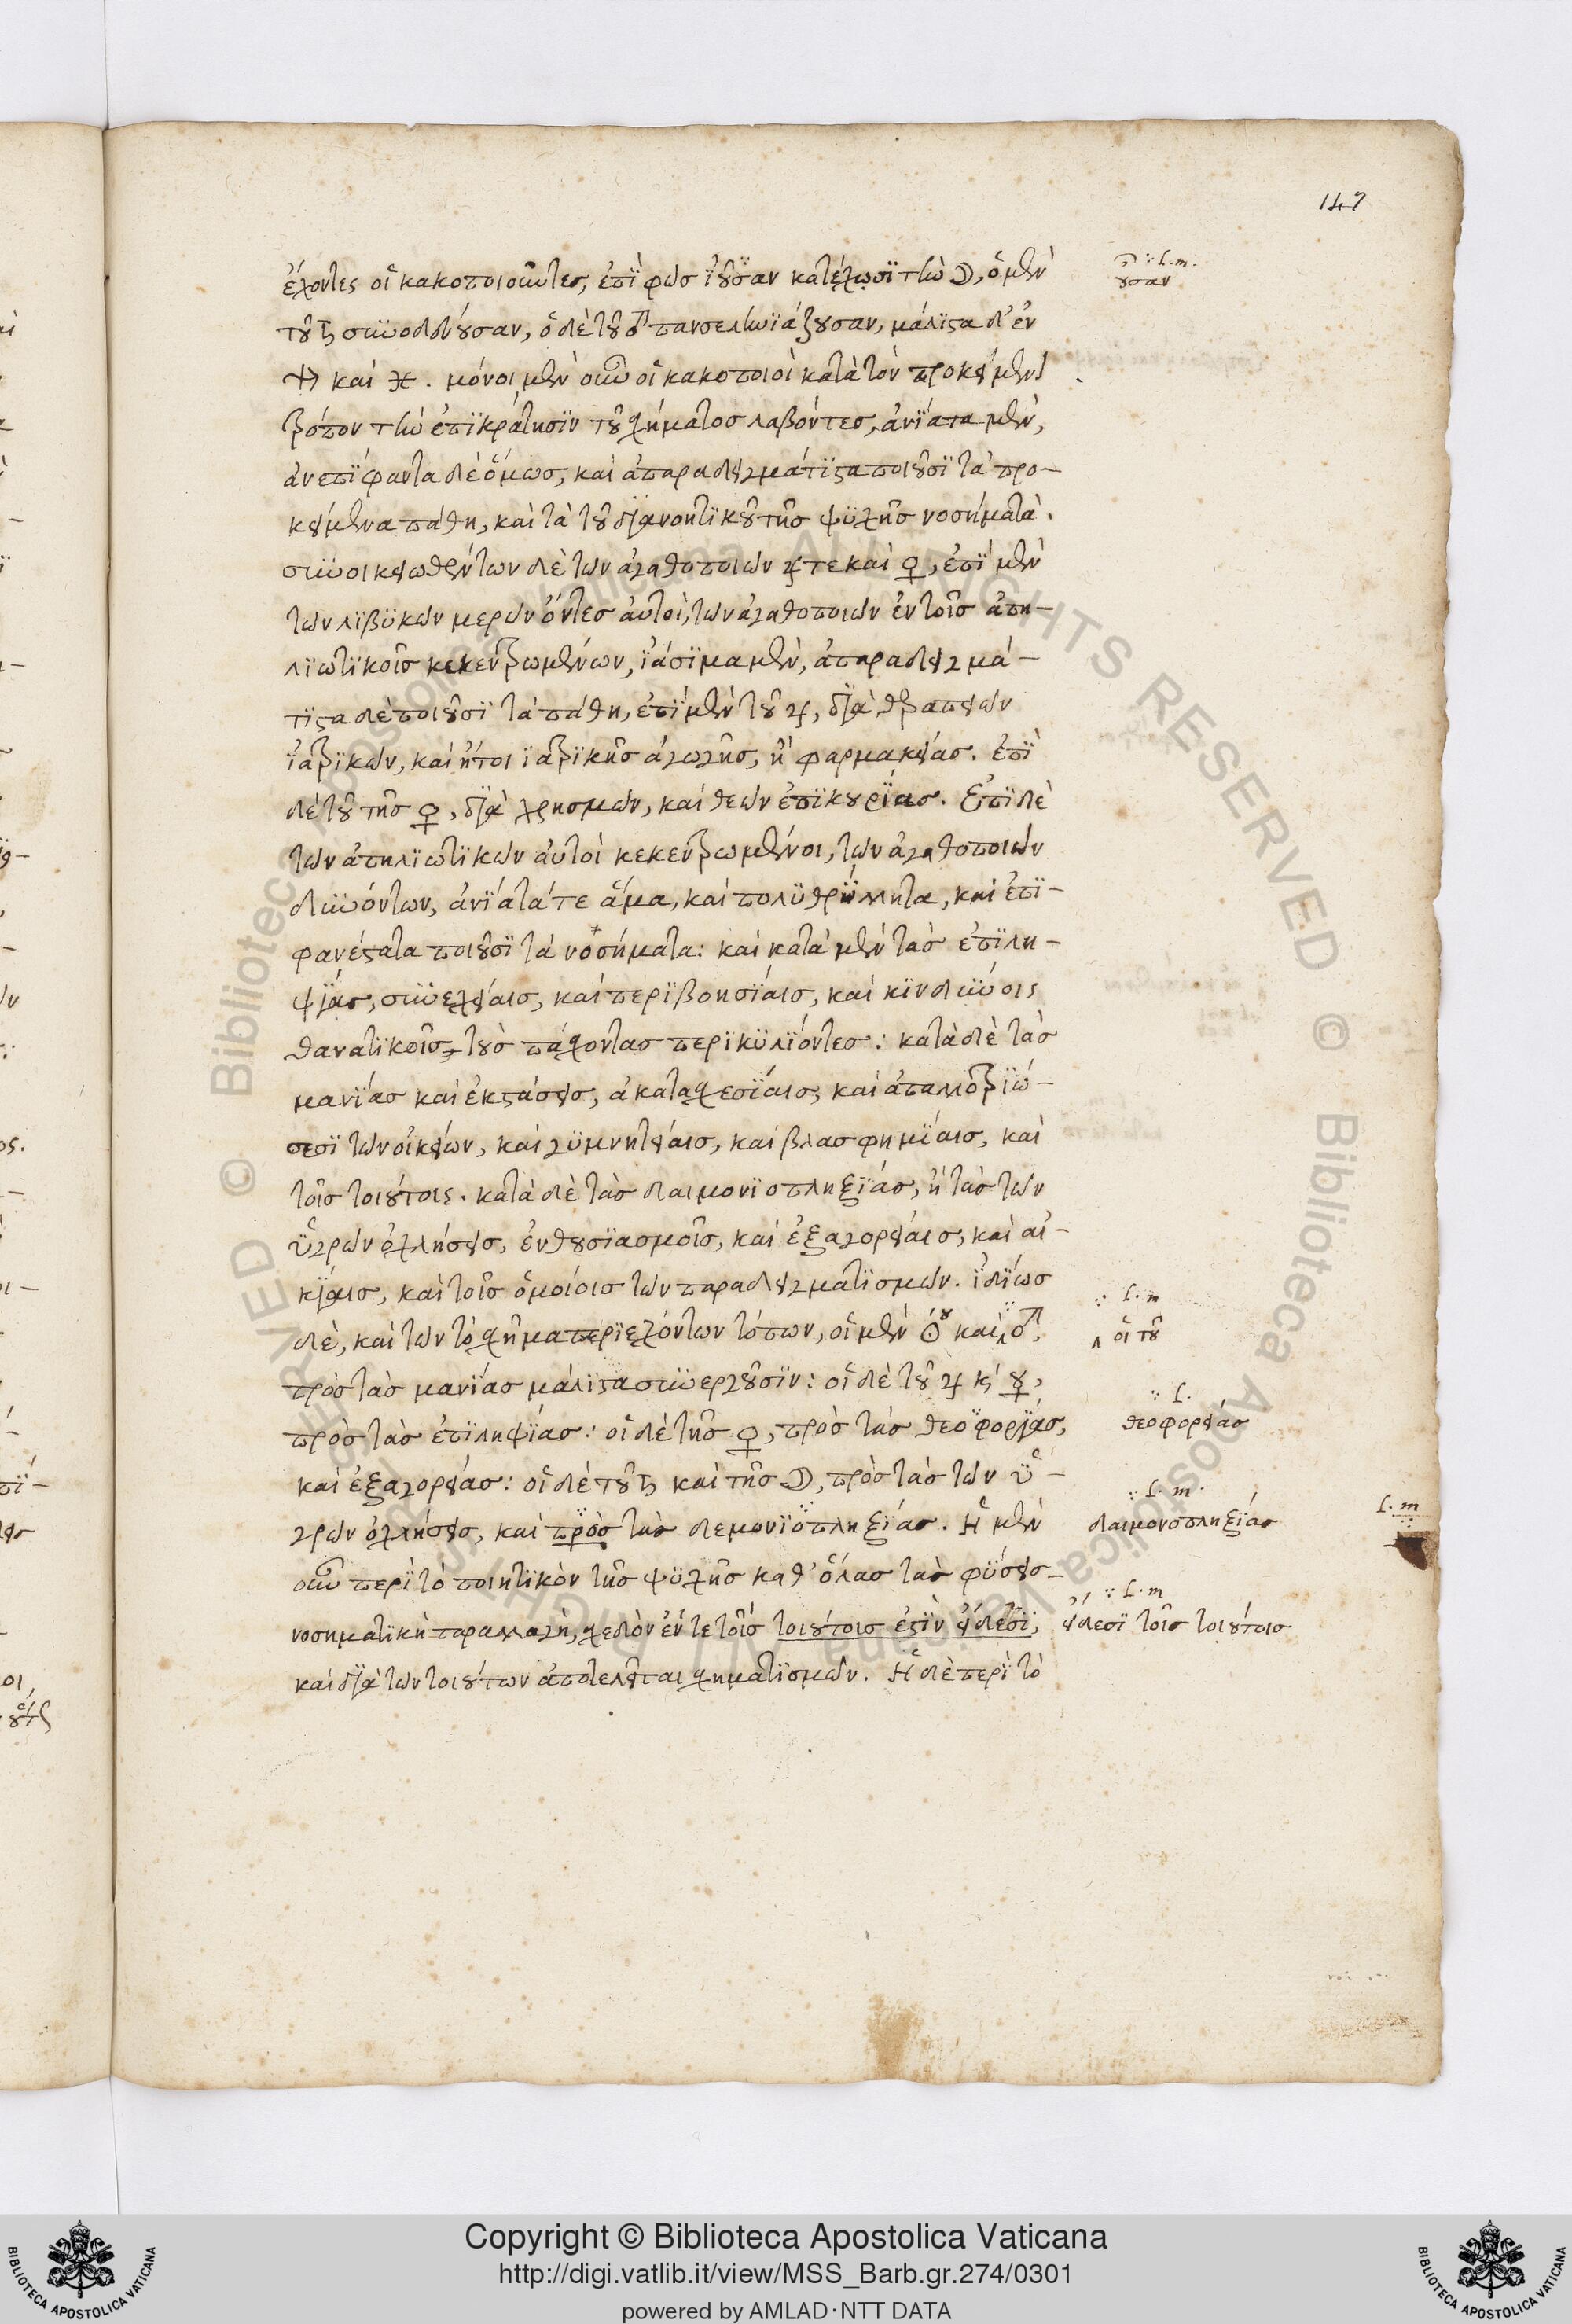 147
ἔχοντες οἱ κακοποιοῦντες, ἐπῒ φῶσ ἰοῦσαν κατέχωσϊ τὴν ☽, ὁ μὲν
τοῦ ♄ συνοδεύουσαν, ὁ δὲ τοῦ ♂ πανσεληνϊάζουσαν, μάλϊστα δ' ἐν
♐ καὶ ♓. μόνοι μὲν οὖν οἱ κακοποιοὶ κατὰ τὸν προκείμενον
τρόπον τὴν ἐπϊκράτησϊν τοῦ σχήματοσ λαβόντεσ, ἀνΐατα μὲν,
ἀνεπΐφαντα δὲ ὅμωσ, καὶ ἀπαραδειγμάτϊστα ποιοῦσϊ τὰ προ-
κείμενα πάθη, καὶ τὰ τοῦ δϊανοητϊκοῦ τῆσ ψϋχῆσ νοσήματα.
συνοικειωθέντων δὲ τῶν ἀγαθοποιῶν ♃ τε καὶ ♀, ἐπῒ μὲν
τῶν λϊβϋκῶν μερῶν ὄντεσ ἀυτοὶ, τῶν ἀγαθοποιῶν ἐν τοῖσ ἀπη-
λϊωτϊκοῖσ κεκεντρωμένων, ϊάσϊμα μὲν, ἀπαραδειγμά-
τϊστα δὲ ποιοῦσϊ τὰ πάθη, ἐπῒ μὲν τοῦ ♃, δϊὰ θεραπειῶν
ϊατρϊκῶν, καὶ ἤτοι ϊατρϊκῆσ ἀγωγῆσ, ἢ φαρμακείασ. ἐπῒ
δὲ τοῦ τῆσ ♀, δϊὰ χρησμῶν, καὶ θεῶν ἐπϊκουρΐασ. Ἐπῒ δὲ
τῶν ἀπηλϊωτϊκῶν ἀυτοὶ κεκεντρωμένοι, τῶν ἀγαθοποιῶν
δυνόντων, ἀνΐατά τε ἅμα, καὶ πολϋθρΰλλητα, καὶ ἐπϊ-
φανέστατα ποιοῦσϊ τὰ νοσήματα: καὶ κατὰ μὲν τὰσ ἐπϊλη-
ψΐασ, συνεχείαισ, καὶ περϊβοησΐαισ, καὶ κϊνδύνοις
θανατϊκοῖσ, τοὺσ πάσχοντασ περϊκϋλΐοντεσ: κατὰ δὲ τὰσ
μανΐασ καὶ ἐκστάσεισ, ἀκατασχεσΐαισ, καὶ ἀπαλλοτρϊώ-
σεσϊ τῶν οἰκείων, καὶ γϋμνητείαισ, καὶ βλασφημΐαισ, καὶ
τοῖσ τοιούτοις. κατὰ δὲ τὰσ δαιμονϊοπληξΐασ, ἢ τὰσ τῶν
ὑγρῶν ὀχλήσεισ, ἐνθουσϊασμοῖσ, καὶ ἐξαγορείαισ, καὶ αἰ-
κΐαισ, καὶ τοῖσ ὁμοίοισ τῶν παραδειγματϊσμῶν. ἰδΐωσ
δὲ, καὶ τῶν τὸ σχῆμα περϊεχόντων τόπων, οἱ μὲν ☉ου καὶ ♂,
πρὸσ τὰσ μανΐασ μάλϊστα συνεργοῦσϊν: οἱ δὲ τοῦ ♃ κὶ ☿,
πρὸσ τὰσ ἐπϊληψΐασ: οἱ δὲ τῆσ ♀, πρὸσ τὰσ θεοφορΐασ,
καὶ ἐξαγορείασ: οἱ δὲ τοῦ ♄ καὶ τῆσ ☽, πρὸσ τὰσ τῶν ὑ-
γρῶν ὀχλήσεισ, καὶ πρὸσ τὰσ δεμονϊοπληξΐασ. Ἡ μὲν
οὖν περῒ τὸ ποιητϊκὸν τῆσ ψϋχῆσ καθ' ὅλασ τὰσ φΰσεισ
νοσηματϊκὴ παραλλαγὴ, σχεδὸν ἔν τε τοῖσ τοιούτοισ ἐστῒν εἴδεσϊ,
καὶ δϊὰ τῶν τοιούτων ἀποτελεῖται σχηματϊσμῶν. Ἡ δὲ περῒ τὸ
∵ L. m.
οῦσαν
∵ L. m
οἱ τοῦ
∵ L.
θεοφορείάσ
∵ L. m.
δαιμονοπληξΐασ
L. m
∵ L. m
εἴδεσϊ τοῖσ τοιούτοισ
Copyright © Biblioteca Apostolica Vaticana
http://digi.vatlib.it/view/MSS_Barb.gr.274/0301
powered by AMLAD·NTT DATA
BIBLIOTECA APOSTOLICA VATICANA
BIBLIOTECA APOSTOLICA VATICANA